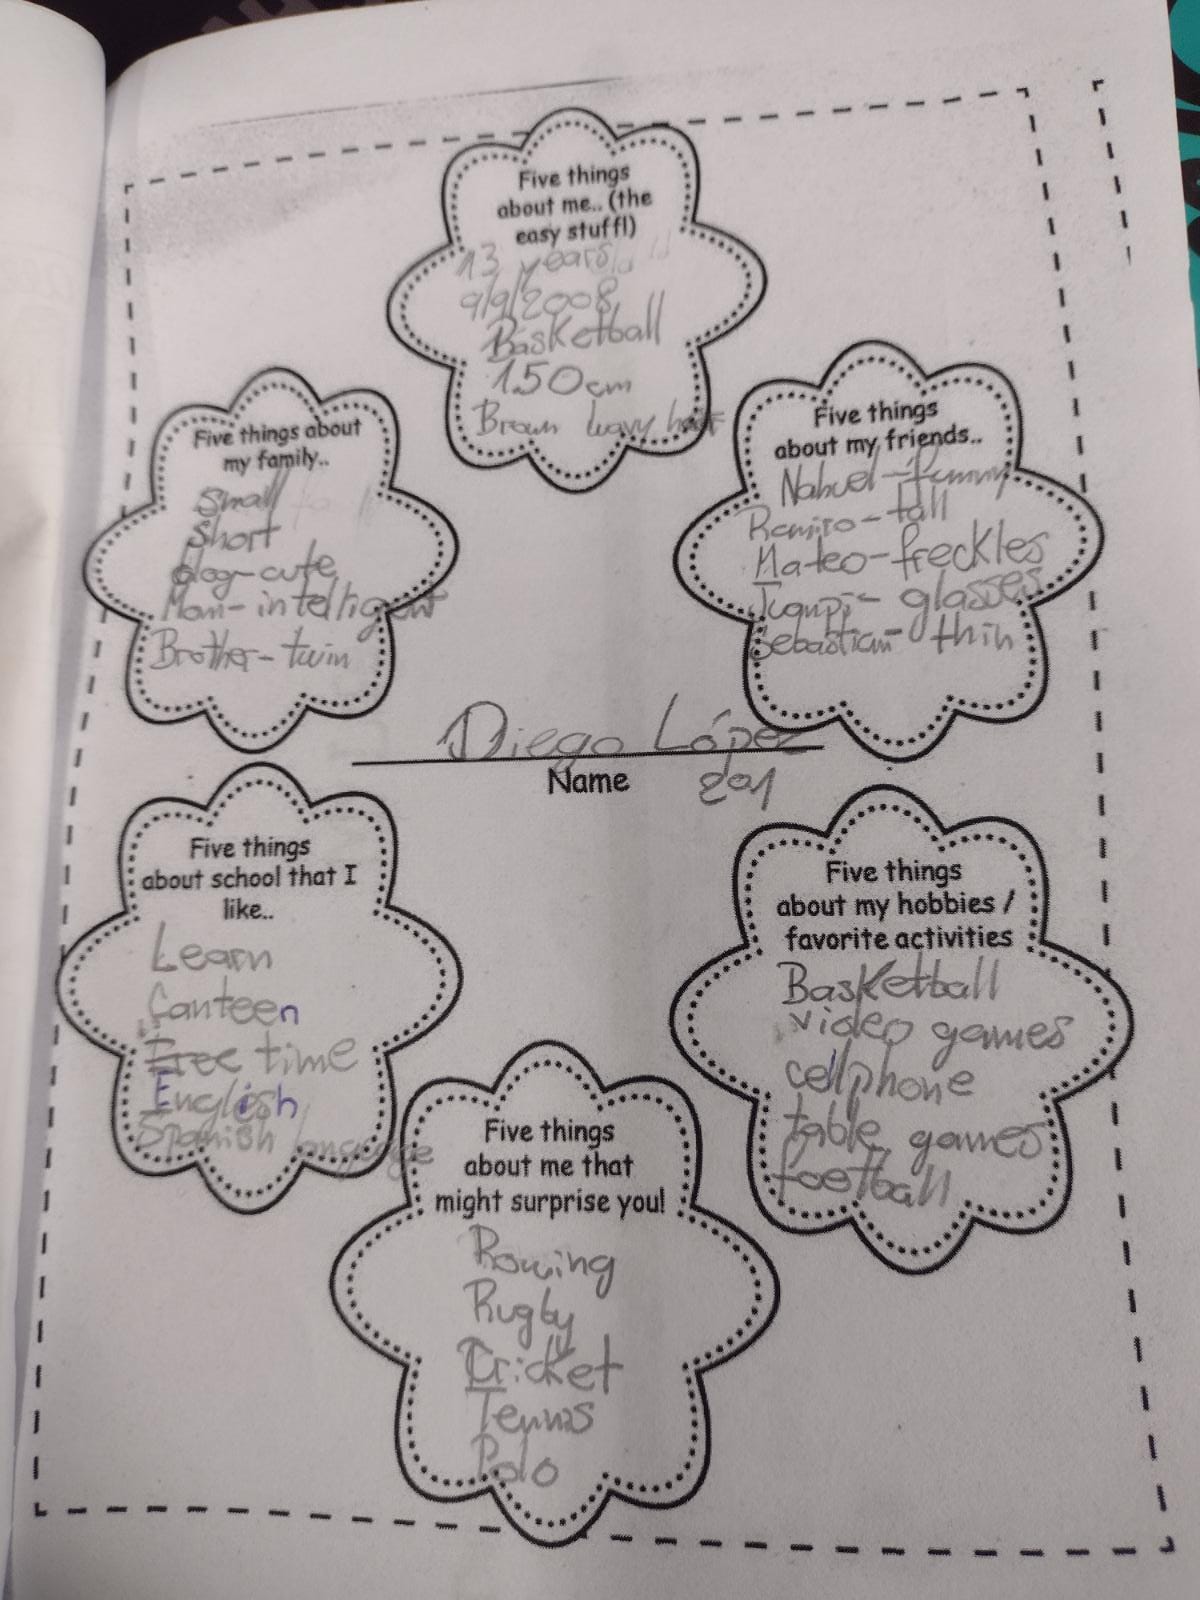 Five things
about me.. (the
easy stuff!)
13 years old
9/9/2008
Basketball
1.50cm
Brown wavy hair
Five things about
my family..
Small
Short
dog-cute
Mom-intelligent
Brother-twin
Five things
about my friends..
Nahuel-funny
Ramiro-tall
Mateo-freckles
Juanpi-glasses
Sebastian-thin
Diego López
Name
Five things
about school that I
like..
Learn
Canteen
Free time
English
Spanish language
Five things
about my hobbies /
favorite activities
Basketball
video games
cellphone
table games
football
Five things
about me that
might surprise you!
Rowing
Rugby
Cricket
Tennis
Polo